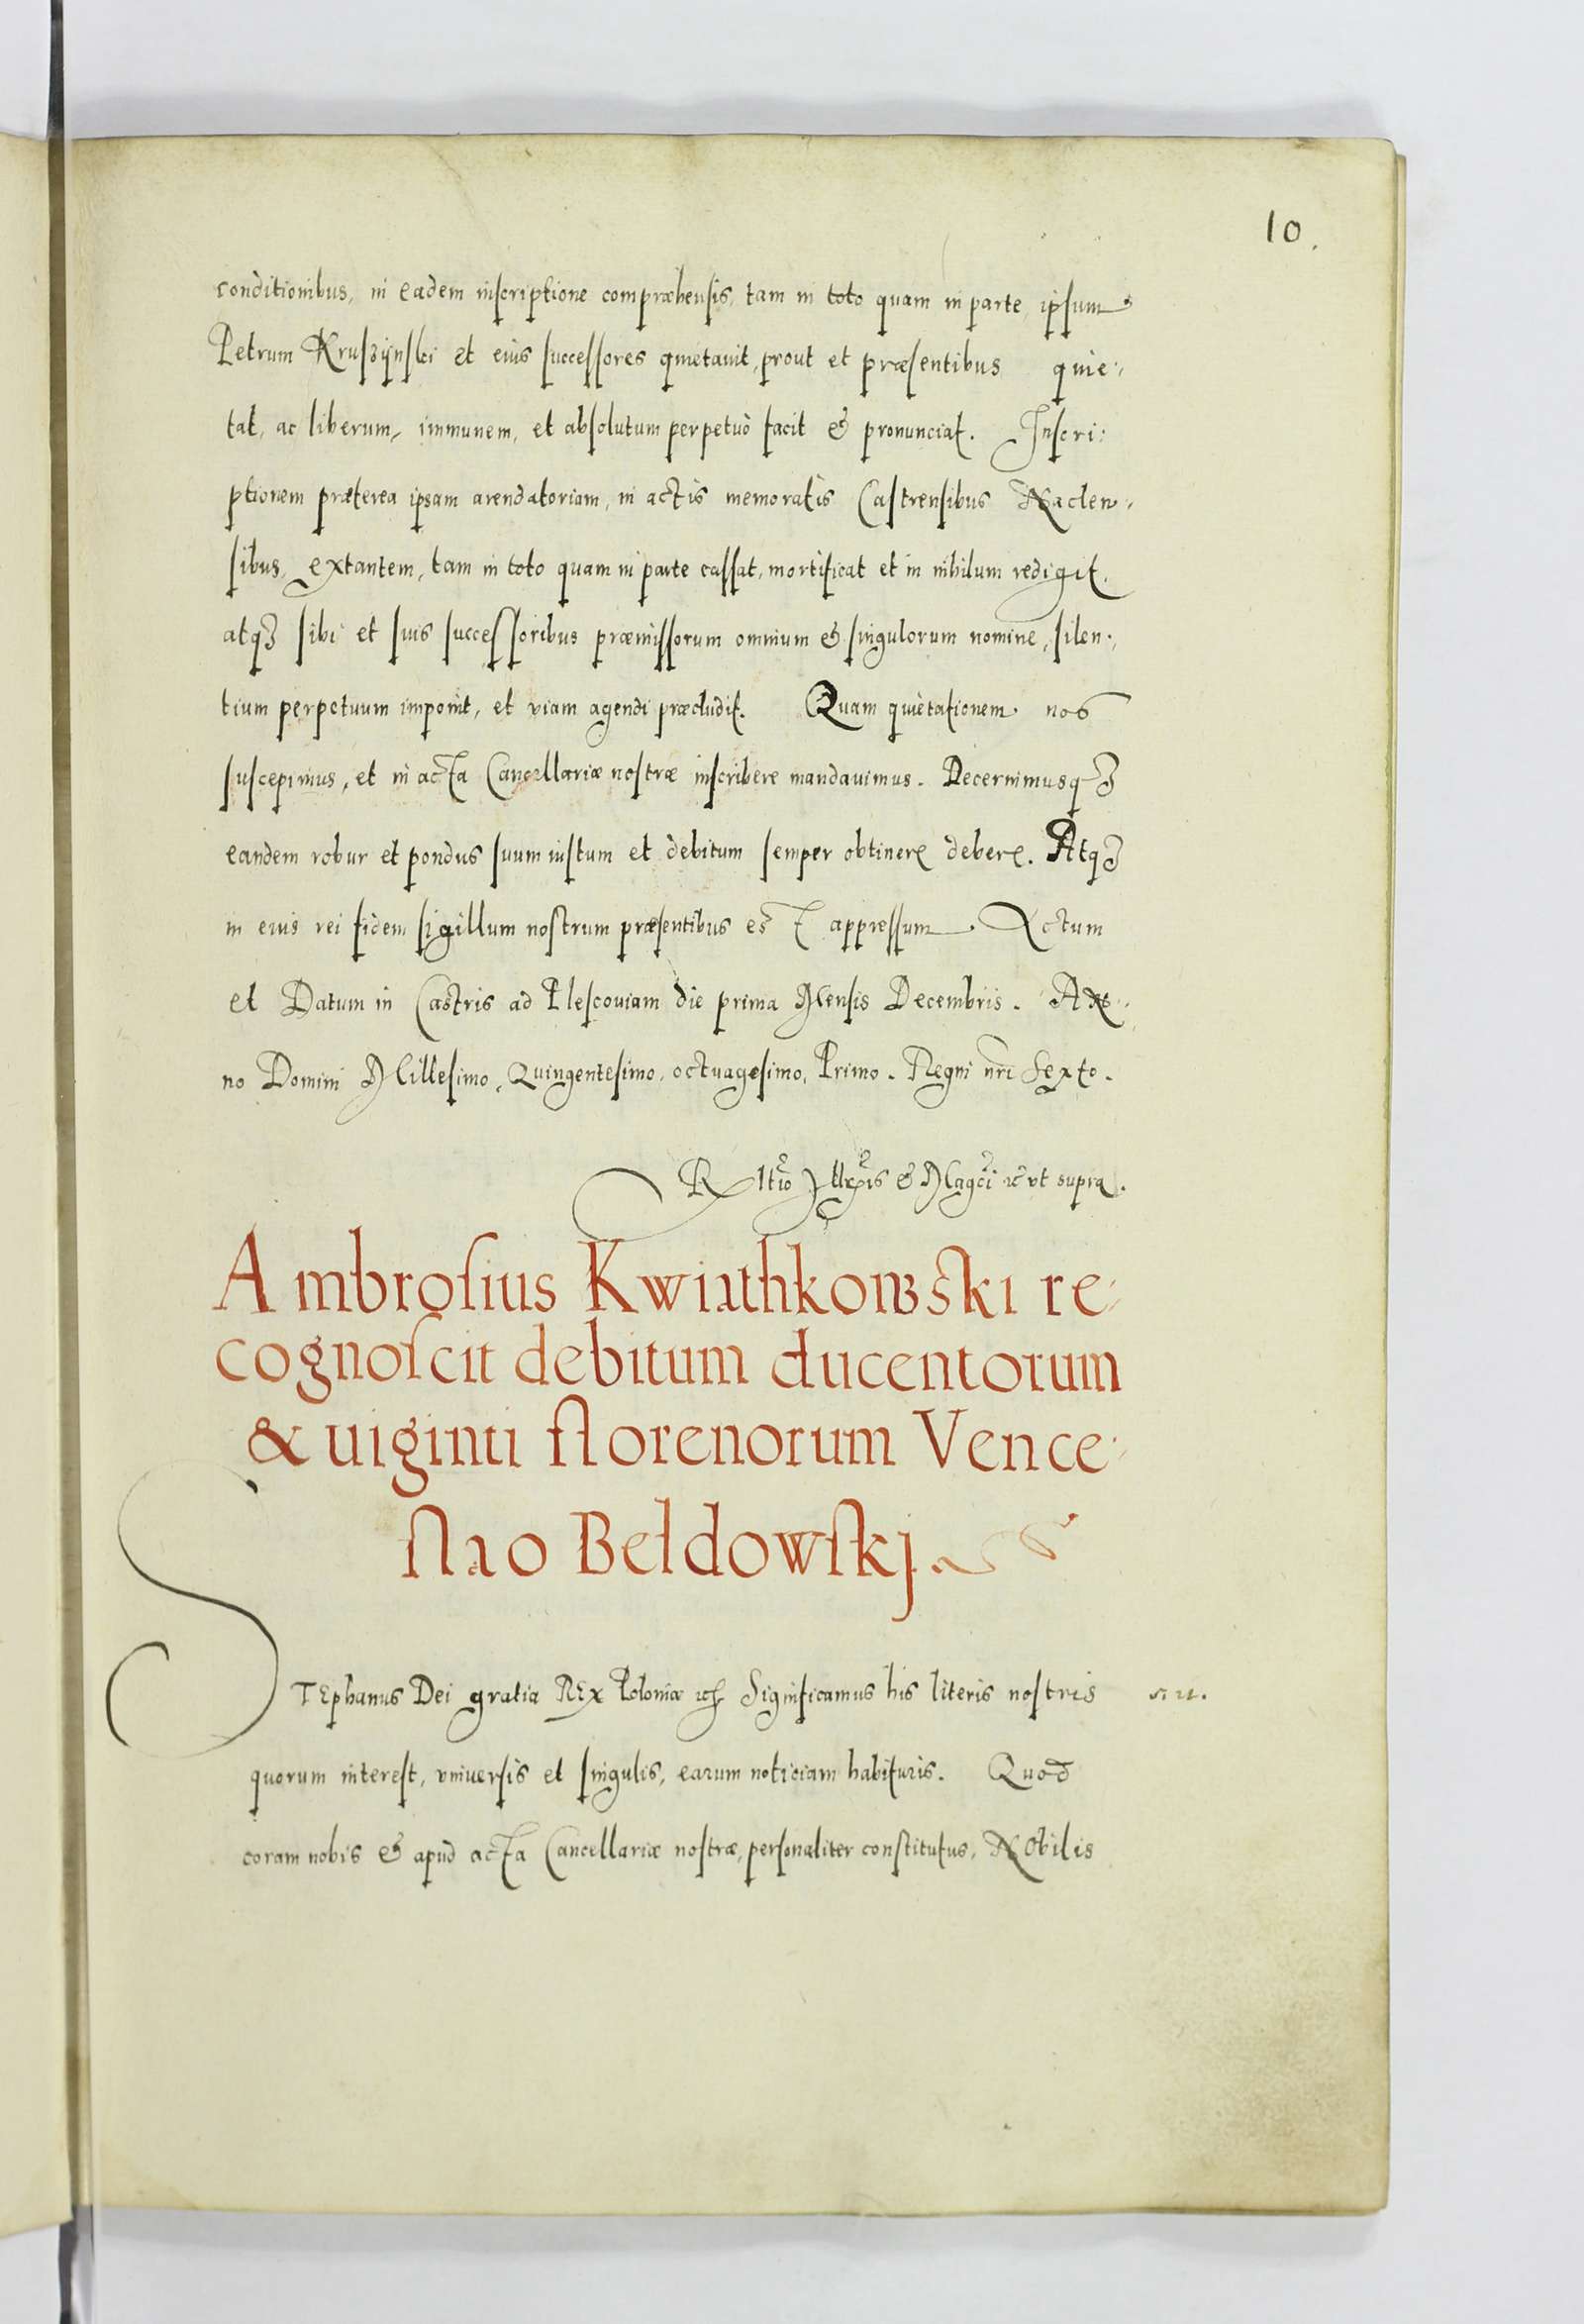 10.
conditionibus, in eadem inscriptione compræhensis, tam in toto quam in parte, ipsum
Petrum Kruszÿnski et eius successores quietauit, prout et præsentibus quie-
tat, ac liberum, immunem, et absolutum perpetuò facit & pronunciat. Inscri-
ptionem præterea ipsam arendatoriam, in actis memoratis Castrensibus Naclen-
sibus, extantem, tam in toto quam in parte cassat, mortificat et in nihilum redigit,
atqȝ sibi et suis successoribus præmissorum omnium & singulorum nomine, silen-
tium perpetuum imponit, et viam agendi præcludit. Quam quietationem nos
suscepimus, et in acta Cancellariæ nostræ inscribere mandauimus. Decernimusqȝ
eandem robur et pondus suum iustum et debitum semper obtinere debere. Atqȝ
in eius rei fidem sigillum nostrum præsentibus est appressum. Actum
et Datum in Castris ad Plescouiam die prima Mensis Decembris. An-
no Domini Millesimo, Quingentesimo, octuagesimo, Primo. Regni nr̃i Sexto.
Rltio & Magci vt supra.
Ambrosius Kwiathkowski re-
cognoscit debitum ducentorum
& uiginti florenorum Vence-
slao Beldowskj.
STEphanus Dei gratia REx Poloniæ Significamus his literis nostris
quorum interest, vniuersis et singulis, earum noticiam habituris. Quod
coram nobis & apud acta Cancellariæ nostræ, personaliter constitutus, NObilis